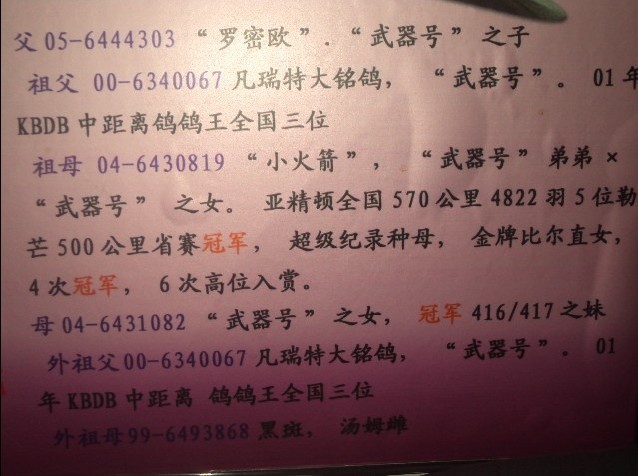 父 05-6444303 “罗密欧”．“武器号”之子
祖父 00-6340067 凡瑞特大铭鸽，“武器号”。 01 年
KBDB 中距离鸽鸽王全国三位
祖母 04-6430819 “小火箭”，“武器号”弟弟 ×
“武器号” 之女。 亚精顿全国 570 公里 4822 羽 5 位勒
芒 500 公里省赛冠军， 超级纪录种母， 金牌比尔直女，
4 次冠军， 6 次高位入赏。
母 04-6431082 “武器号”之女， 冠军 416/417 之妹
外祖父 00-6340067 凡瑞特大铭鸽，“武器号”。 01
年 KBDB 中距离 鸽鸽王全国三位
外祖母 99-6493868 黑斑， 汤姆雌